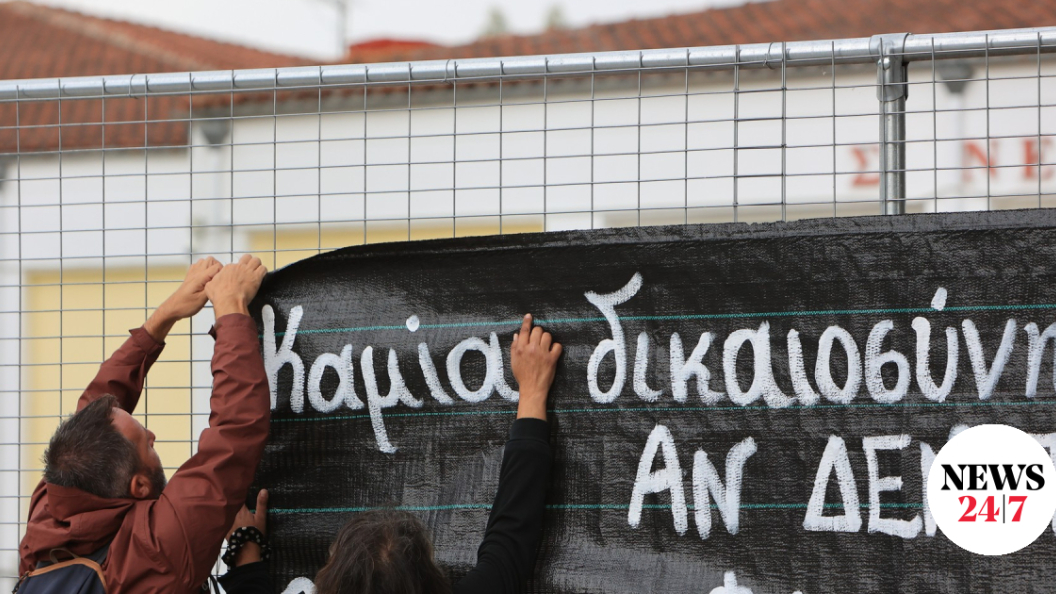 Σ ΝΕ
Καμία δικαιοσύνη
ΑΝ ΔΕΝ
NEWS
24|7